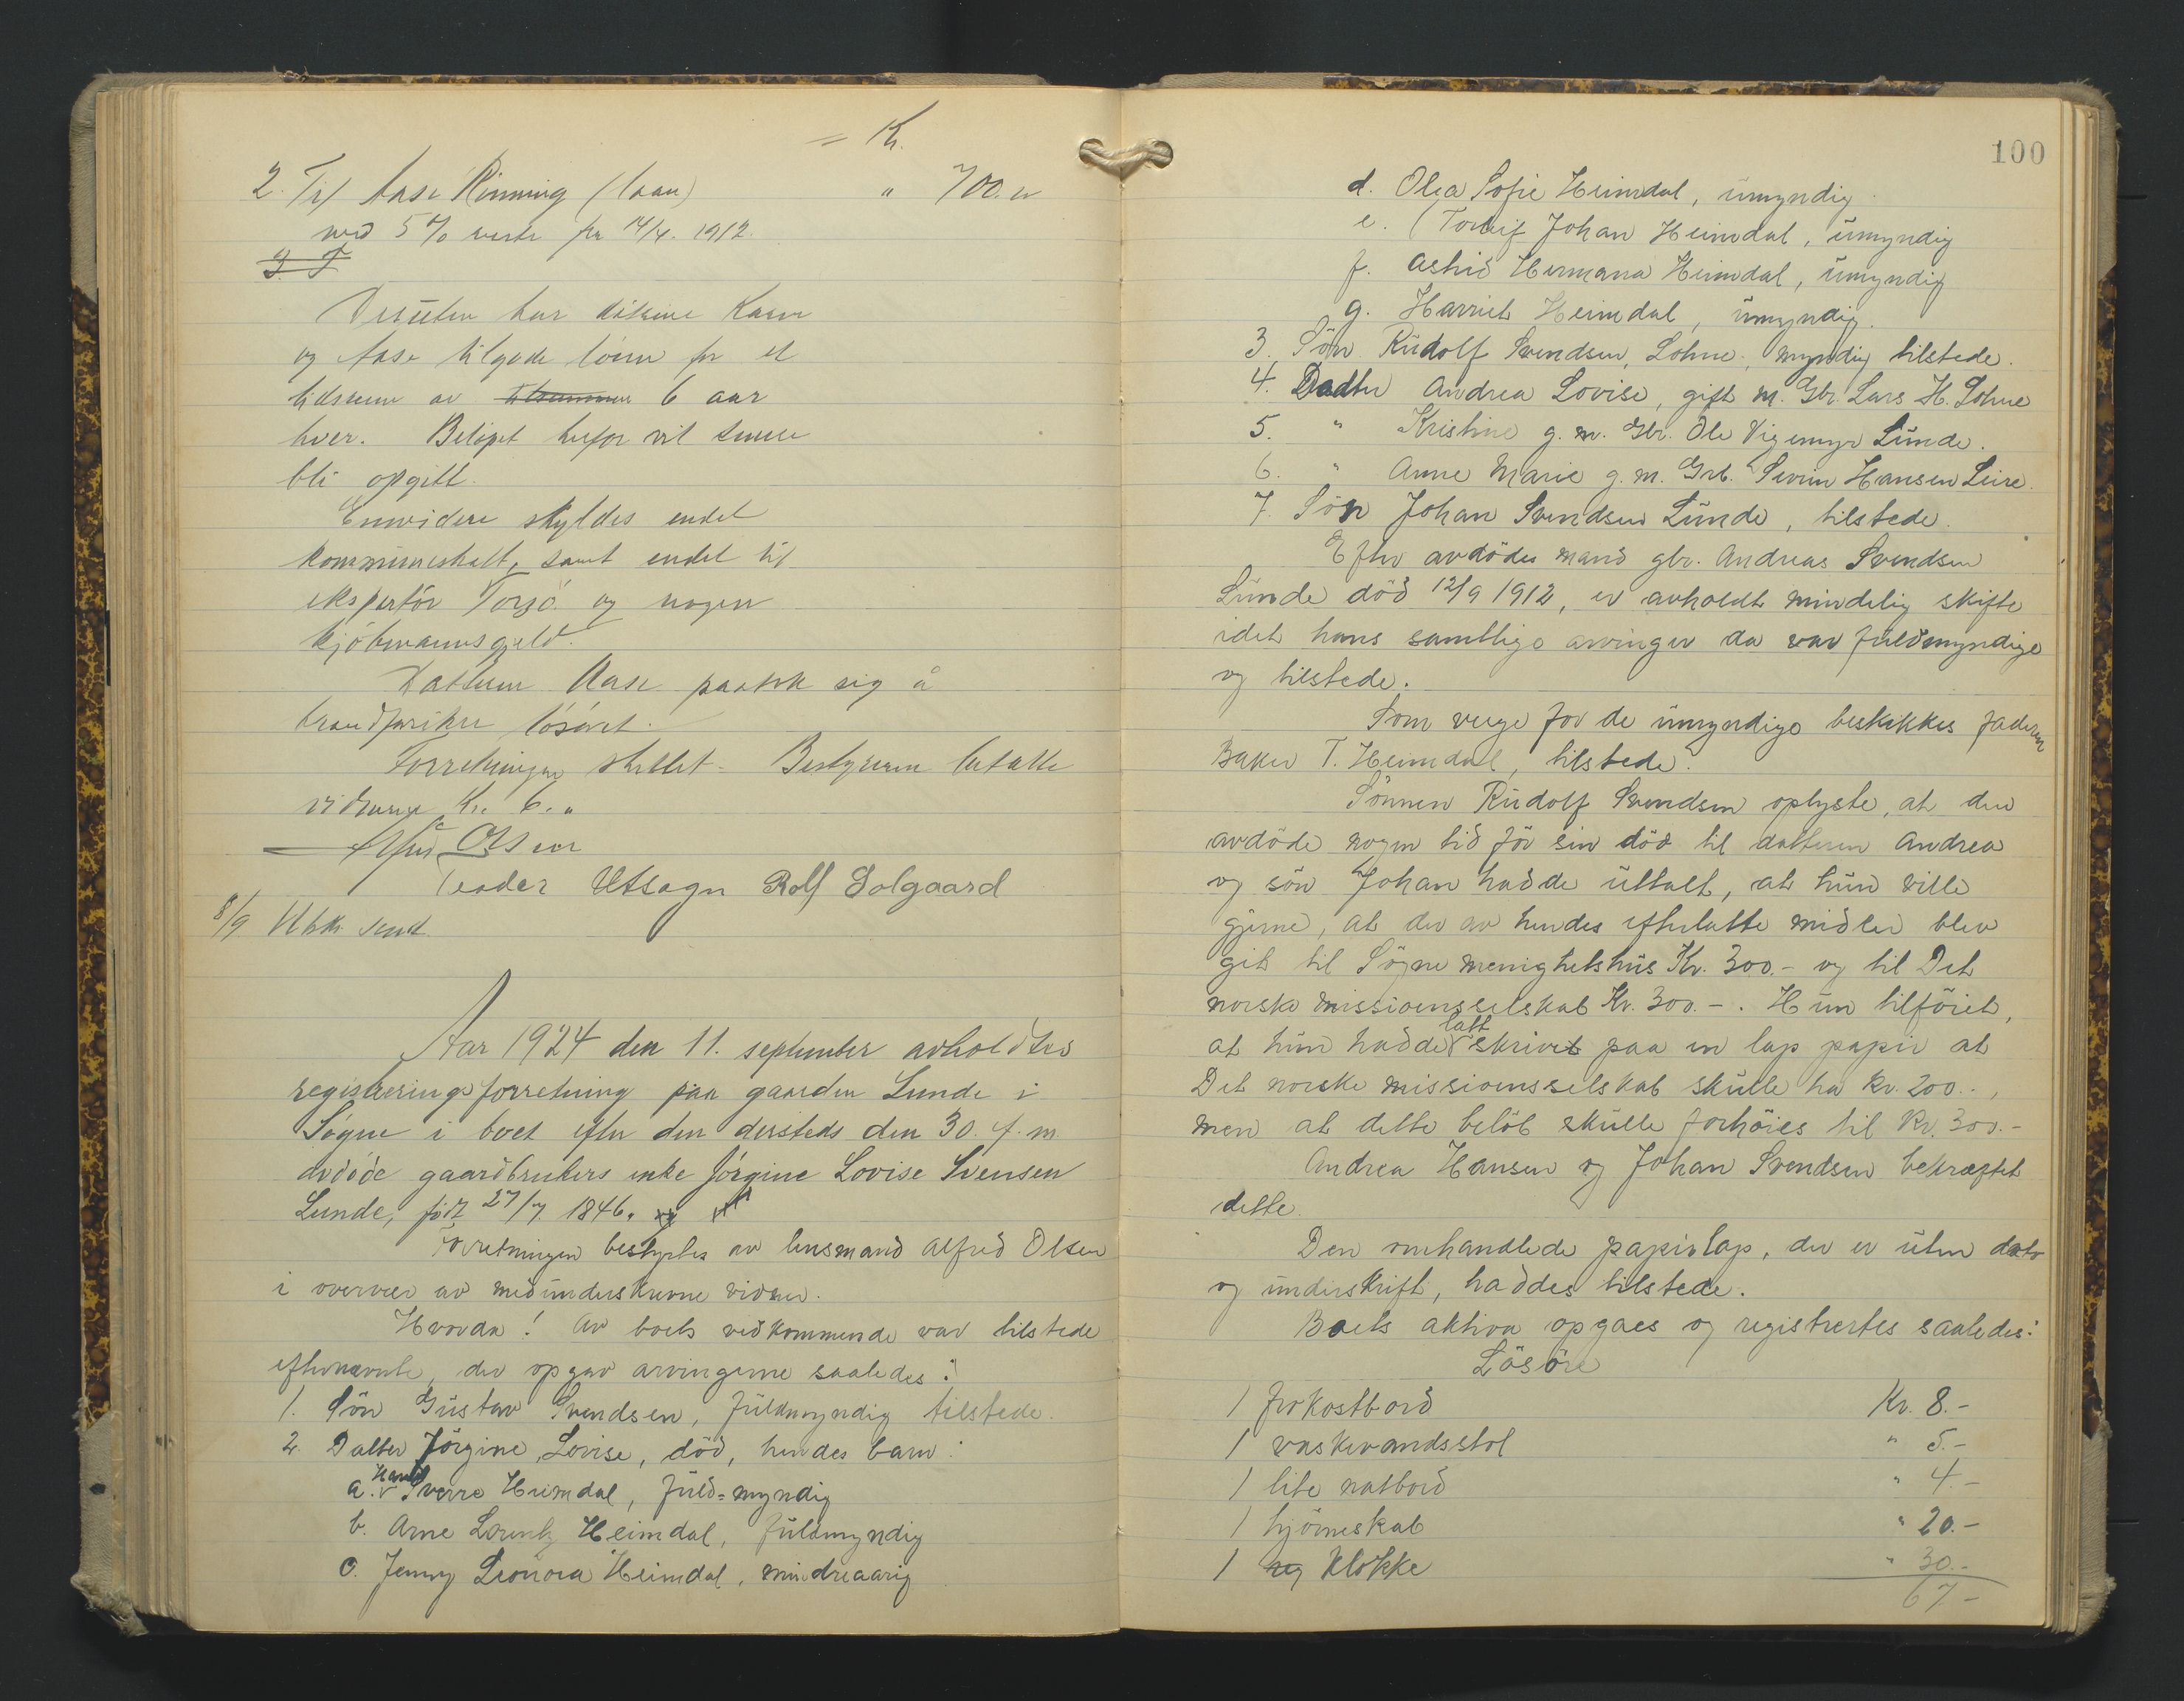 = Kr.
2. Til Aase Rinning (laan) " 700.„
med 5 % rente fra 14/4. 1912.
3. T
Desuten har døtrene Karen
og Aase tilgode lønn for et
tidsrum av tilsammen 6 aar
hver. Beløpet herfor vil senere
bli opgitt.
Ennvidere skyldes endel
kommuneskatt, samt endel til
ekspeditør Torsø og nogen
kjøbmannsgjeld.
Datteren Aase paatok sig å
brandforsikre løsøret.
Forretningen sluttet. Bestyreren betalte
vidnene Kr. 6.„
Alfred Olsen
Teodor Utsogn Rolf Solgaard
8/9 Utskr. sendt.
Aar 1924 den 11. september avholdtes
registreringsforretning paa gaarden Lunde i
Søgne i boet efter den dersteds den 30. f. m.
avdøde gaardbrukers enke Jørgine Lovise Svensen
Lunde, født 27/7 1846.
Forretningen bestyrtes av lensmand Alfred Olsen
i overvær av medunderskrevne vidner.
Hvorda! Av boets vedkommende var tilstede
efternevnte, der opgav arvingerne saaledes:
1. Søn Gustav Svendsen, fuldmyndig tilstede.
2. Datter Jørgine Lovise, død, hendes barn:
a. Harald Sverre Heimdal, fuld=myndig
b. Arne Lorentz Heimdal, fuldmyndig
c. Jenny Leonora Heimdal, mindreaarig
100
d. Olea Sofie Heimdal, umyndig.
e. (Torleif Johan Heimdal, umyndig
f. Astrid Hermana Heimdal, umyndig
g. Harriet Heimdal, umyndig.
3. Søn Rudolf Svendsen, Lohne, myndig tilstede.
4. Dadter Andrea Lovise, gift m. Gbr. Lars H. Lohne
5. " Kristine g. m. Gbr. Ole Vigemyr Lunde.
6. " Anne Marie g. m. Grb. Severin Hansen Leire.
7. Søn Johan Svendsen Lunde, tilstede.
Efter avdødes mand gbr. Andreas Svendsen
Lunde død 12/9 1912, er avholdt mindelig skifte
idet hans samtlige arvinger da var fuldmyndige
og tilstede.
Som verge for de umyndige beskikkes faderen
Baker T. Heimdal, tilstede.
Sønnen Rudolf Svendsen oplyste, at den
avdøde nogen tid før sin død til datteren Andrea
og søn Johan hadde uttalt, at hun ville
gjerne, at der av hendes efterlatte midler blev
git til Søgne menighetshus Kr. 300.- og til Det
norske missionsselskab Kr. 300.-. Hun tilføiet,
at hun hadde latt skrivet paa en lap papir at
Det norske missionsselskab skulle ha kr. 200.-,
men at dette beløb skulle forhøies til Kr. 300.-
Andrea Hansen og Johan Svendsen bekræftet
dette.
Den omhandlede papirlap, der er uten dato
og underskrift, haddes tilstede.
Boets aktiva opgaes og registrertes saaledes:
Løsøre
1 frokostbord Kr. 8.-
1 vaskevandsstol " 5.-
1 lite natbord " 4.-
1 hjørneskab " 20.-
1 klokke " 30.-
67-